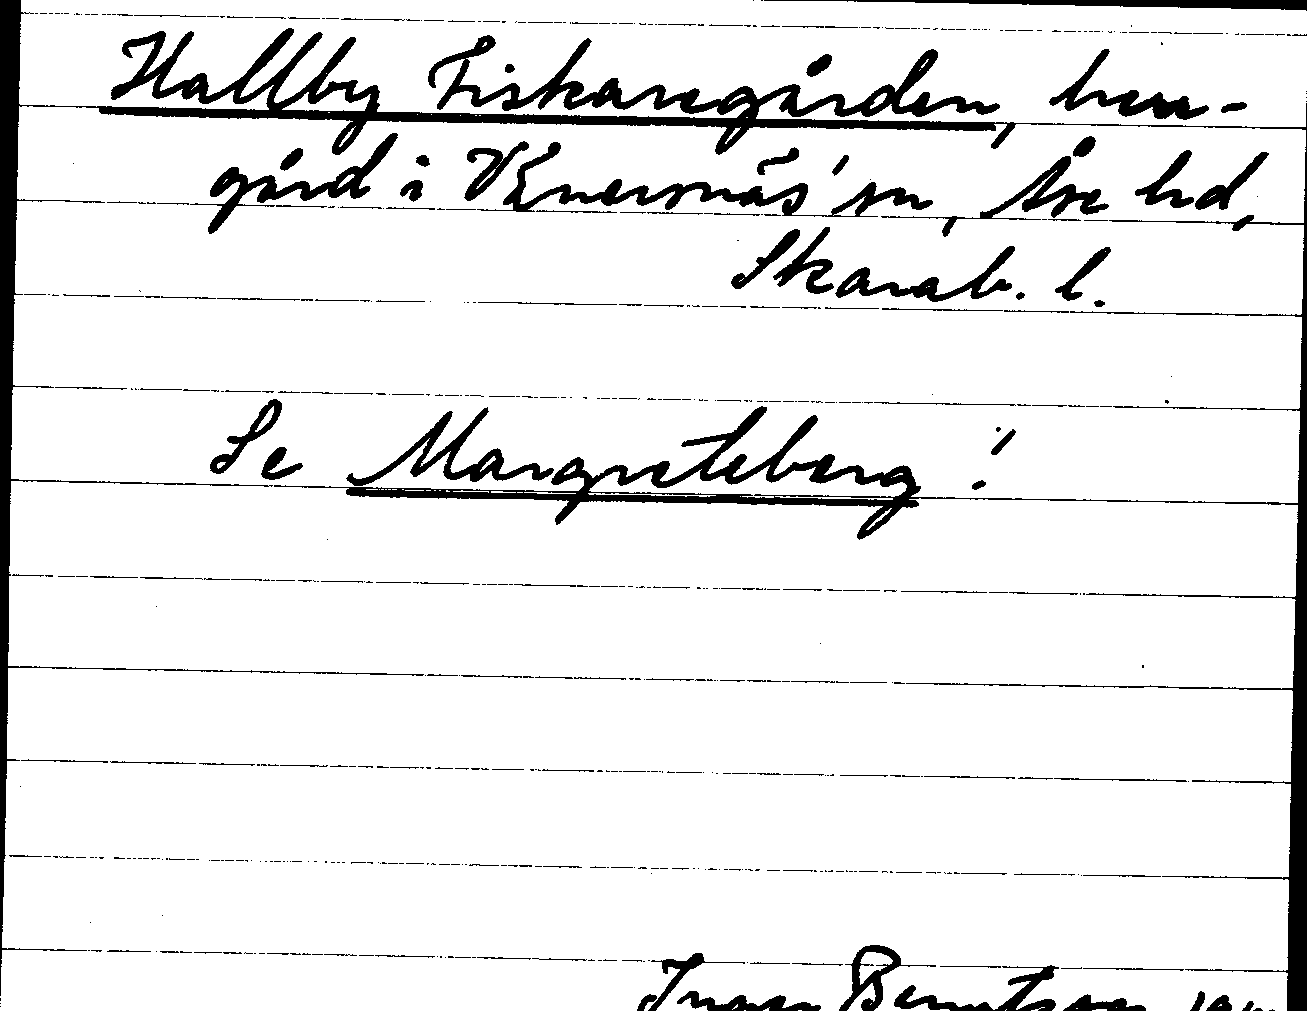 Hallby Fiskaregården, herr-
gård i Vänersnäs' sn, Åse hd,
Skarab. l.
Se Margreteberg!